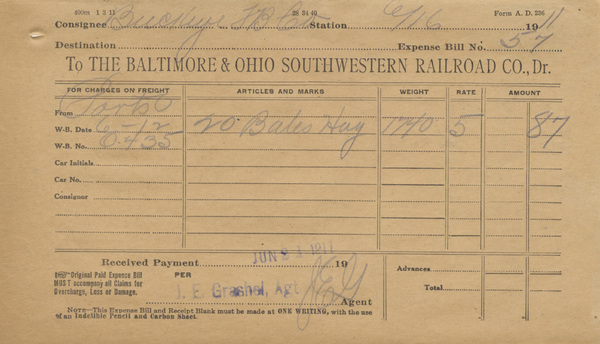 400m 1 3 11 28 84 40 Form A. D. 236
Consignee Buckeye Station 6/16 1911
Destination Expense Bill No. 57
To THE BALTIMORE & OHIO SOUTHWESTERN RAILROAD CO., Dr.
FOR CHARGES ON FREIGHT ARTICLES AND MARKS WEIGHT RATE AMOUNT
From
W-B. Date 6-12 20 Bales Hay 1740 5 87
W-B. No. 6435
Car Initials
Car No.
Consignor
Received Payment JUN 21 1911 19
Original Paid Expense Bill PER
MUST accompany all Claims for
Overcharge, Loss or Damage.
I. E. Grashel, Agt Agent
Advances
Total
NOTE—This Expense Bill and Receipt Blank must be made at ONE WRITING, with the use
of an Indelible Pencil and Carbon Sheet.